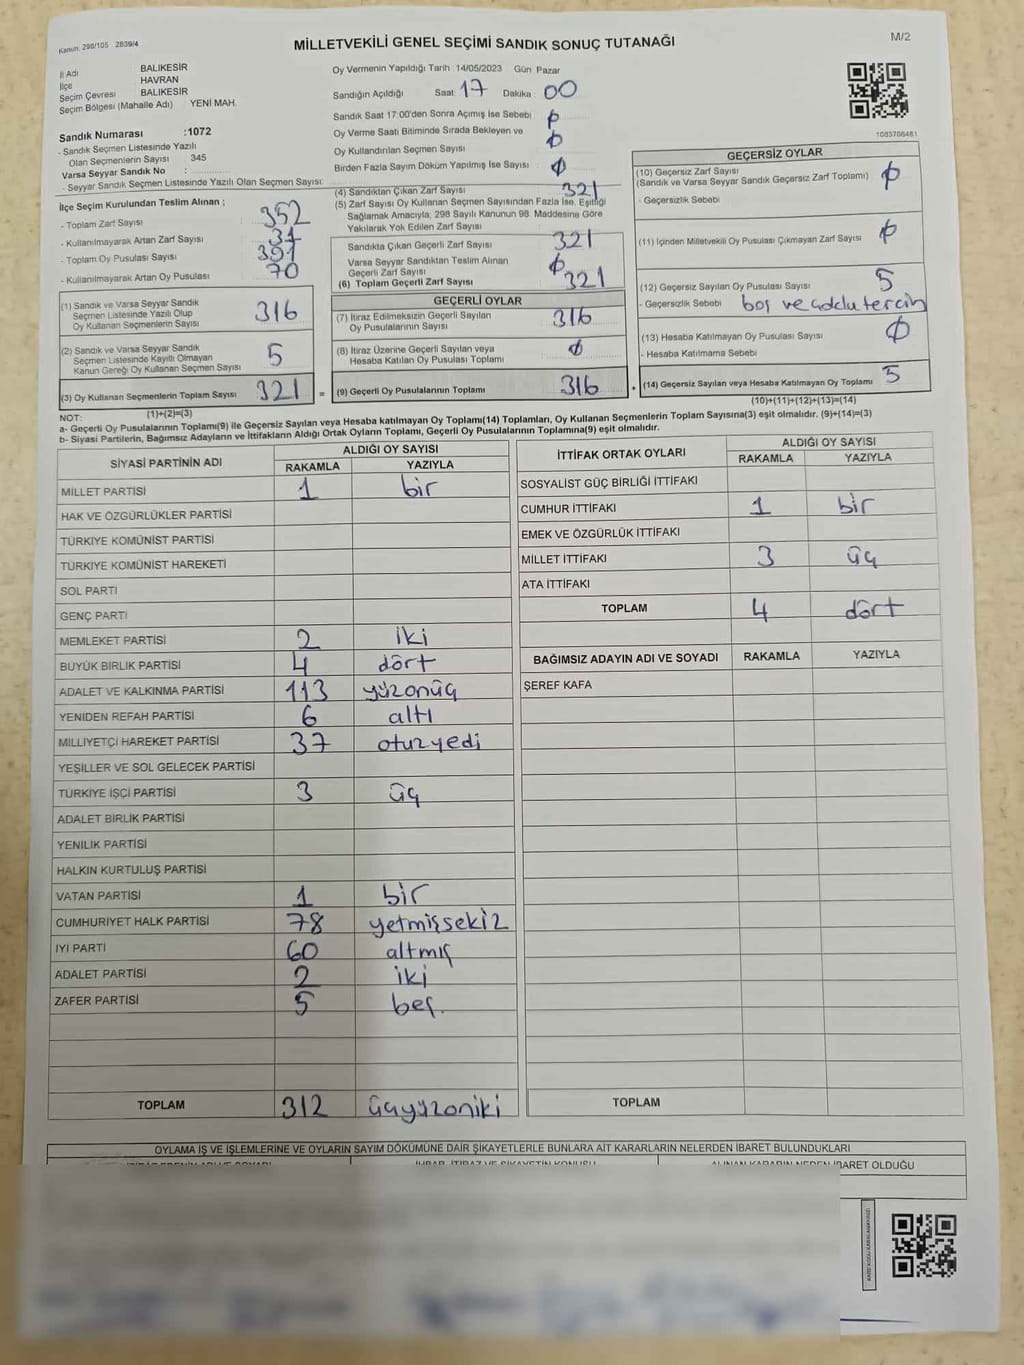 Kanun: 298/105 2839/4
MİLLETVEKİLİ GENEL SEÇİMİ SANDIK SONUÇ TUTANAĞI
M/2
İl Adı BALIKESİR
İlçe HAVRAN
Seçim Çevresi BALIKESİR
Seçim Bölgesi (Mahalle Adı) YENİ MAH.
Sandık Numarası :1072
- Sandık Seçmen Listesinde Yazılı
Olan Seçmenlerin Sayısı 345
Varsa Seyyar Sandık No :
- Seyyar Sandık Seçmen Listesinde Yazılı Olan Seçmen Sayısı:
İlçe Seçim Kurulundan Teslim Alınan ;
- Toplam Zarf Sayısı 352
- Kullanılmayarak Artan Zarf Sayısı 31
- Toplam Oy Pusulası Sayısı 391
- Kullanılmayarak Artan Oy Pusulası 70
(1) Sandık ve Varsa Seyyar Sandık
Seçmen Listesinde Yazılı Olup
Oy Kullanan Seçmenlerin Sayısı 316
(2) Sandık ve Varsa Seyyar Sandık
Seçmen Listesinde Kayıtlı Olmayan
Kanun Gereği Oy Kullanan Seçmen Sayısı 5
(3) Oy Kullanan Seçmenlerin Toplam Sayısı 321
(1)+(2)=(3)
Oy Vermenin Yapıldığı Tarih 14/05/2023 Gün Pazar
Sandığın Açıldığı Saat 17 Dakika 00
Sandık Saat 17:00'den Sonra Açılmış İse Sebebi ϕ
Oy Verme Saati Bitiminde Sırada Bekleyen ve
Oy Kullandırılan Seçmen Sayısı ϕ
Birden Fazla Sayım Döküm Yapılmış İse Sayısı ϕ
(4) Sandıktan Çıkan Zarf Sayısı 321
(5) Zarf Sayısı Oy Kullanan Seçmen Sayısından Fazla İse, Eşitliği
Sağlamak Amacıyla; 298 Sayılı Kanunun 98. Maddesine Göre
Yakılarak Yok Edilen Zarf Sayısı
Sandıkta Çıkan Geçerli Zarf Sayısı 321
Varsa Seyyar Sandıktan Teslim Alınan
Geçerli Zarf Sayısı ϕ
(6) Toplam Geçerli Zarf Sayısı 321
GEÇERLİ OYLAR
(7) İtiraz Edilmeksizin Geçerli Sayılan
Oy Pusulalarının Sayısı 316
(8) İtiraz Üzerine Geçerli Sayılan veya
Hesaba Katılan Oy Pusulası Toplamı ϕ
= (9) Geçerli Oy Pusulalarının Toplamı 316 +
1083706461
GEÇERSİZ OYLAR
(10) Geçersiz Zarf Sayısı
(Sandık ve Varsa Seyyar Sandık Geçersiz Zarf Toplamı) ϕ
- Geçersizlik Sebebi
(11) İçinden Milletvekili Oy Pusulası Çıkmayan Zarf Sayısı ϕ
(12) Geçersiz Sayılan Oy Pusulası Sayısı 5
- Geçersizlik Sebebi boş ve çoklu tercih
(13) Hesaba Katılmayan Oy Pusulası Sayısı ϕ
- Hesaba Katılmama Sebebi
(14) Geçersiz Sayılan veya Hesaba Katılmayan Oy Toplamı 5
(10)+(11)+(12)+(13)=(14)
NOT:
a- Geçerli Oy Pusulalarının Toplamı(9) ile Geçersiz Sayılan veya Hesaba katılmayan Oy Toplamı(14) Toplamları, Oy Kullanan Seçmenlerin Toplam Sayısına(3) eşit olmalıdır. (9)+(14)=(3)
b- Siyasi Partilerin, Bağımsız Adayların ve İttifakların Aldığı Ortak Oyların Toplamı, Geçerli Oy Pusulalarının Toplamına(9) eşit olmalıdır.
SİYASİ PARTİNİN ADI ALDIĞI OY SAYISI
RAKAMLA YAZIYLA
MİLLET PARTİSİ 1 bir
HAK VE ÖZGÜRLÜKLER PARTİSİ
TÜRKİYE KOMÜNİST PARTİSİ
TÜRKİYE KOMÜNİST HAREKETİ
SOL PARTİ
GENÇ PARTİ
MEMLEKET PARTİSİ 2 iki
BÜYÜK BİRLİK PARTİSİ 4 dört
ADALET VE KALKINMA PARTİSİ 113 yüzonüç
YENİDEN REFAH PARTİSİ 6 altı
MİLLİYETÇİ HAREKET PARTİSİ 37 otuzyedi
YEŞİLLER VE SOL GELECEK PARTİSİ
TÜRKİYE İŞÇİ PARTİSİ 3 üç
ADALET BİRLİK PARTİSİ
YENİLİK PARTİSİ
HALKIN KURTULUŞ PARTİSİ
VATAN PARTİSİ 1 bir
CUMHURİYET HALK PARTİSİ 78 yetmişsekiz
İYİ PARTİ 60 altmış
ADALET PARTİSİ 2 iki
ZAFER PARTİSİ 5 beş.
TOPLAM 312 üçyüzoniki
İTTİFAK ORTAK OYLARI ALDIĞI OY SAYISI
RAKAMLA YAZIYLA
SOSYALİST GÜÇ BİRLİĞİ İTTİFAKI
CUMHUR İTTİFAKI 1 bir
EMEK VE ÖZGÜRLÜK İTTİFAKI
MİLLET İTTİFAKI 3 üç
ATA İTTİFAKI
TOPLAM 4 dört
BAĞIMSIZ ADAYIN ADI VE SOYADI RAKAMLA YAZIYLA
ŞEREF KAFA
TOPLAM
OYLAMA İŞ VE İŞLEMLERİNE VE OYLARIN SAYIM DÖKÜMÜNE DAİR ŞİKAYETLERLE BUNLARA AİT KARARLARIN NELERDEN İBARET BULUNDUKLARI
ALINAN KARARIN NEDEN İBARET OLDUĞU